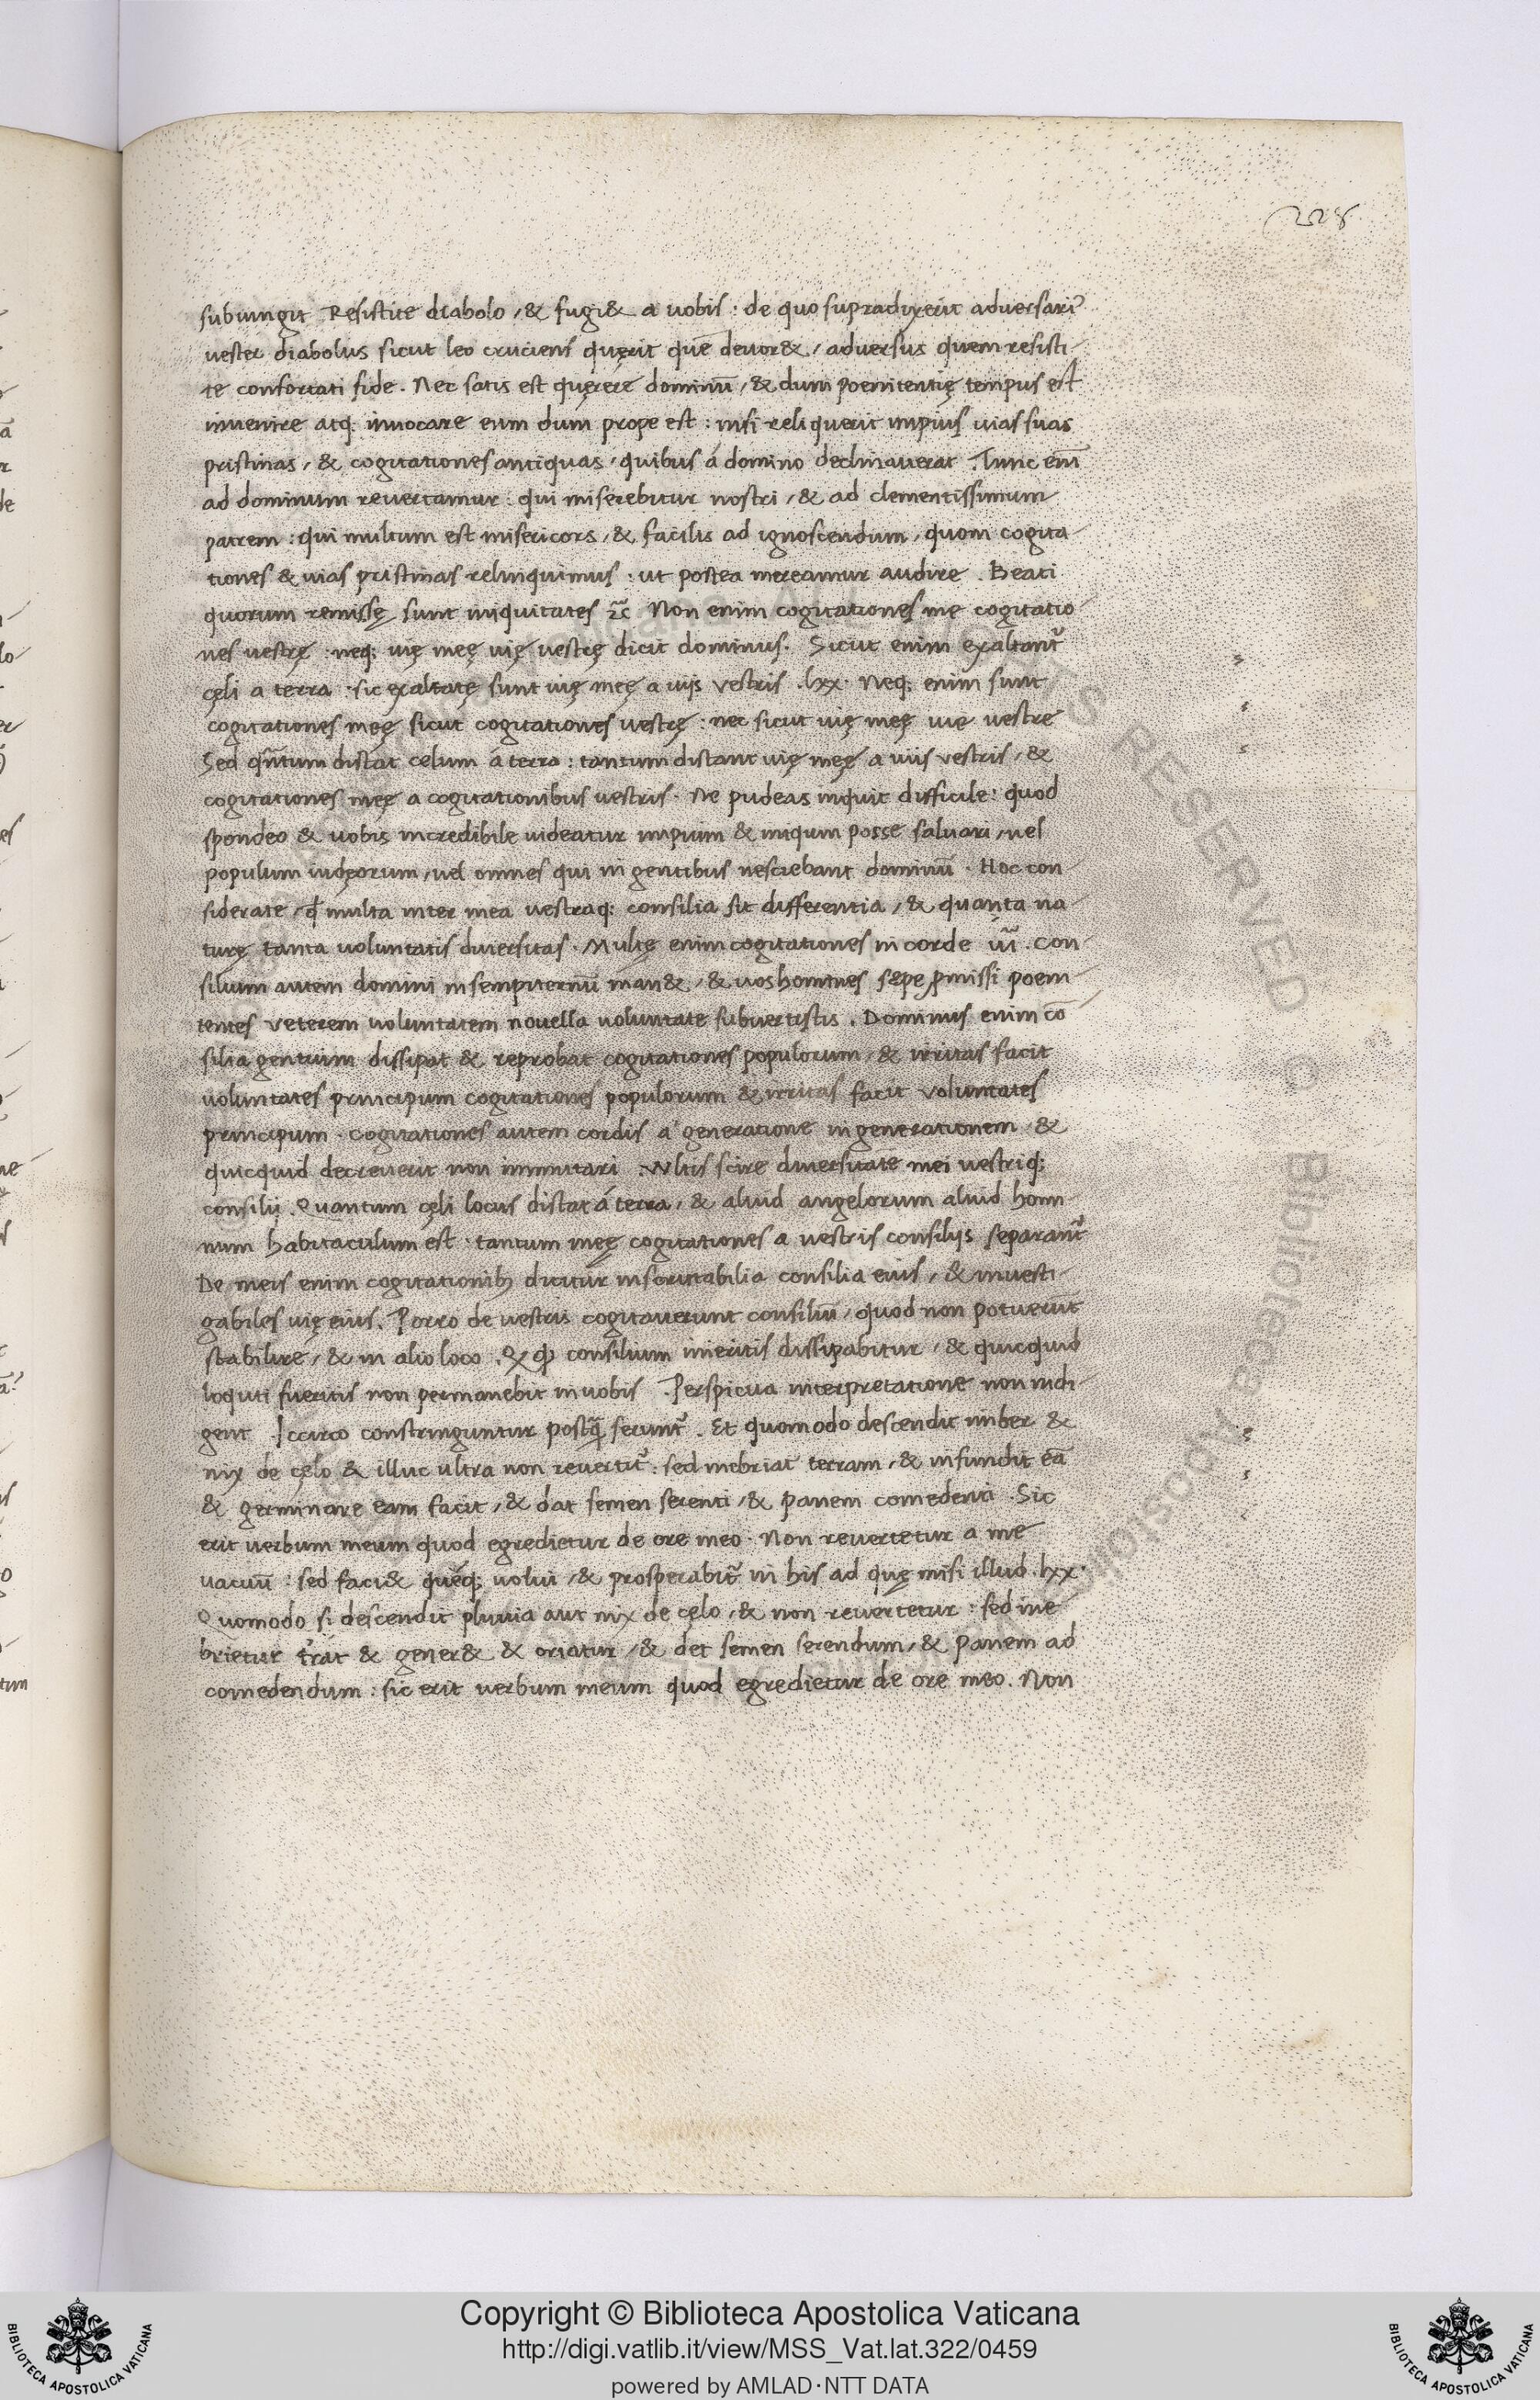 228
subiungit Resistite diabolo, & fugi& a uobis: de quo supradixerit aduersari᾽
uester diabolus sicut leo cruciens quęrit quē deuor&, aduersus quem resisti-
te confortati fide. Nec satis est quęrere dominū, & dum poenitentię tempus est
inuenire atq; inuocare eum dum prope est: nisi reliquerit impius uias suas
pristinas, & cogitationes antiquas, quibus á domino declinauerat. Tunc eni᷉
ad dominum reuertamur: qui miserebitur nostri, & ad clementissimum
patrem: qui multum est misericors, & facilis ad ignoscendum, quom cogita-
tiones & uias pristinas relinquimus: ut postea mereamur audire. Beati
quorum remissę sunt iniquitates &c̃ Non enim cogitationes mę cogitatio-
nes uestrę: neq; uię meę uię uestrę dicit dominus. Sicut enim exaltant᷑
cęli a terra: sic exaltatę sunt uię meę a uijs vestris. lxx. Neq; enim sunt
cogitationes meę sicut cogitationes vestrę: nec sicut uię meę uię uestre
Sed qñtum distat celum á terra: tantum distant uię meę a uiis vestris, &
cogitationes meę a cogitationibus vestris. Ne pudeas inquit difficile: quod
spondeo & uobis incredibile uideatur impium & iniqum posse saluari, uel
populum iudęorum, uel omnes qui in gentibus nesciebant dominū. Hoc con-
siderate, qđ multa inter mea vestraq; consilia sit differentia, & quanta na-
turę tanta uoluntatis diuersitas. Multę enim cogitationes in corde ui᷉. Con-
silium autem domini in sempiternū man&, & uos homines sępe ꝓmissi poeni-
tentes veterem uoluntatem nouella uoluntate subuertistis. Dominus enim cō-
silia gentium dissipat & reprobat cogitationes populorum, & irritas facit
uoluntates principum cogitationes populorum & irritas facit voluntates
principum. cogitationes autem cordis a generatione in generationem &
quicquid decreuerit non immutari. Vultis scire diuersitate mei uestriq;
consilij. Quantum cęli locus distat á terra, & aliud angelorum aliud homi-
num habitaculum est. tantum meę cogitationes a uestris consilijs separant᷑
De meis enim cogitationib; dicitur inscrutabilia consilia eius, & inuesti-
gabiles uię eius. Porro de uestris cogitauerunt consiliū, quod non potuerūt
stabilire, & in alio loco. consilium inieritis dissipabitur, & quicquid
loquti fueritis non permanebit in uobis. Perspicua interpretatione non indi-
gent. Iccirco constringuntur postq̃ serunt᷑. Et quomodo descendit imber &
nix de cęlo & illuc ultra non reuertit᷑: sed inebriat terram, & infundit eā
& germinare eam facit, & dat semen serenti, & panem comedenti. Sic
erit uerbum meum quod egredietur de ore meo. Non reuertetur a me
uacuū: sed faci& quęq; uolui, & prosperabit᷑ in his ad quę misi illud. lxx.
Quomodo si descendit pluuia aut nix de cęlo, & non reuertetur: sed ine-
brietur & gener& & oriatur, & det semen serendum, & panem ad
comedendum: sic erit uerbum meum quod egredietur de ore meo. Non
Copyright © Biblioteca Apostolica Vaticana
http://digi.vatlib.it/view/MSS_Vat.lat.322/0459
powered by AMLAD·NTT DATA
BIBLIOTECA APOSTOLICA VATICANA
BIBLIOTECA APOSTOLICA VATICANA